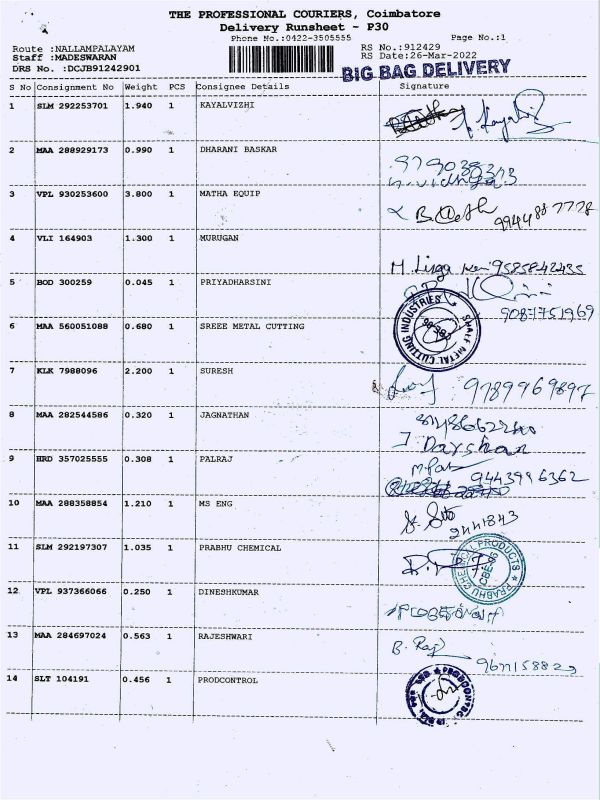 THE PROFESSIONAL COURIERS, Coimbatore
Delivery Runsheet - P30
Phone No.:0422-3505555 Page No.:1
Route :NALLAMPALAYAM RS No.:912429
Staff :MADESWARAN RS Date:26-Mar-2022
DRS No. :DCJB91242901 BIG BAG DELIVERY
S No Consignment No Weight PCS Consignee Details Signature
1 SLM 292253701 1.940 1 KAYALVIZHI
2 MAA 288929173 0.990 1 DHARANI BASKAR
3 VPL 930253600 3.800 1 MATHA EQUIP
4 VLI 164903 1.300 1 MURUGAN
5 BOD 300259 0.045 1 PRIYADHARSINI
9087751969
6 MAA 560051088 0.680 1 SREEE METAL CUTTING
SHAFF METAL CUTTING INDUSTRIES
7 KLK 7988096 2.200 1 SURESH
9789969897
8 MAA 282544586 0.320 1 JAGNATHAN
J Darshan
9 HRD 357025555 0.308 1 PALRAJ
9443996362
10 MAA 288358854 1.210 1 MS ENG
11 SLM 292197307 1.035 1 PRABHU CHEMICAL
PRABHU CHEMICAL PRODUCTS
12 VPL 937366066 0.250 1 DINESHKUMAR
13 MAA 284697024 0.563 1 RAJESHWARI
B. Raj
14 SLT 104191 0.456 1 PRODCONTROL